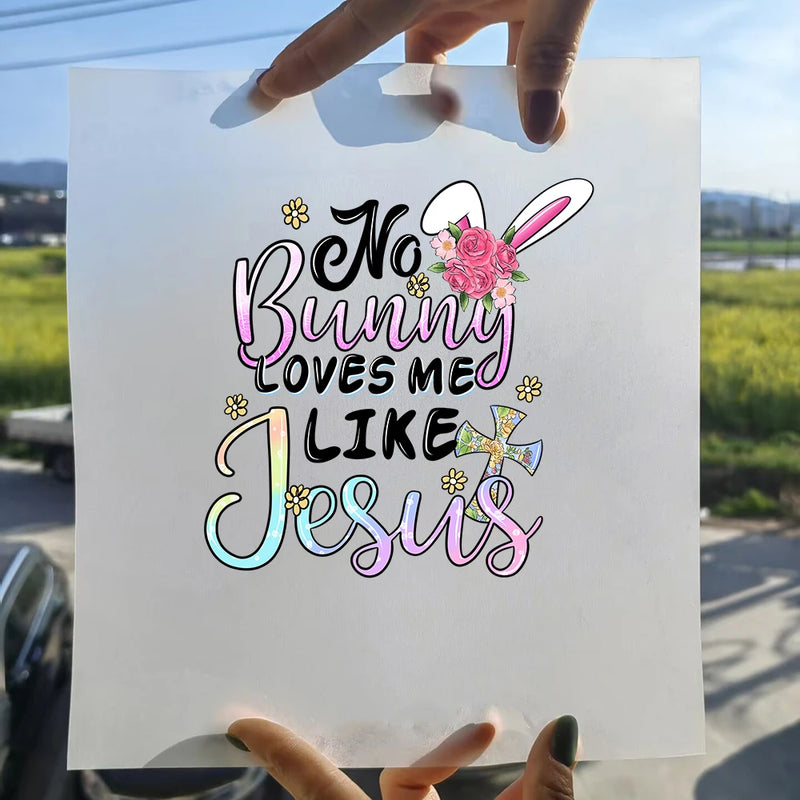 No
Bunny
LOVES ME
LIKE
Jesus